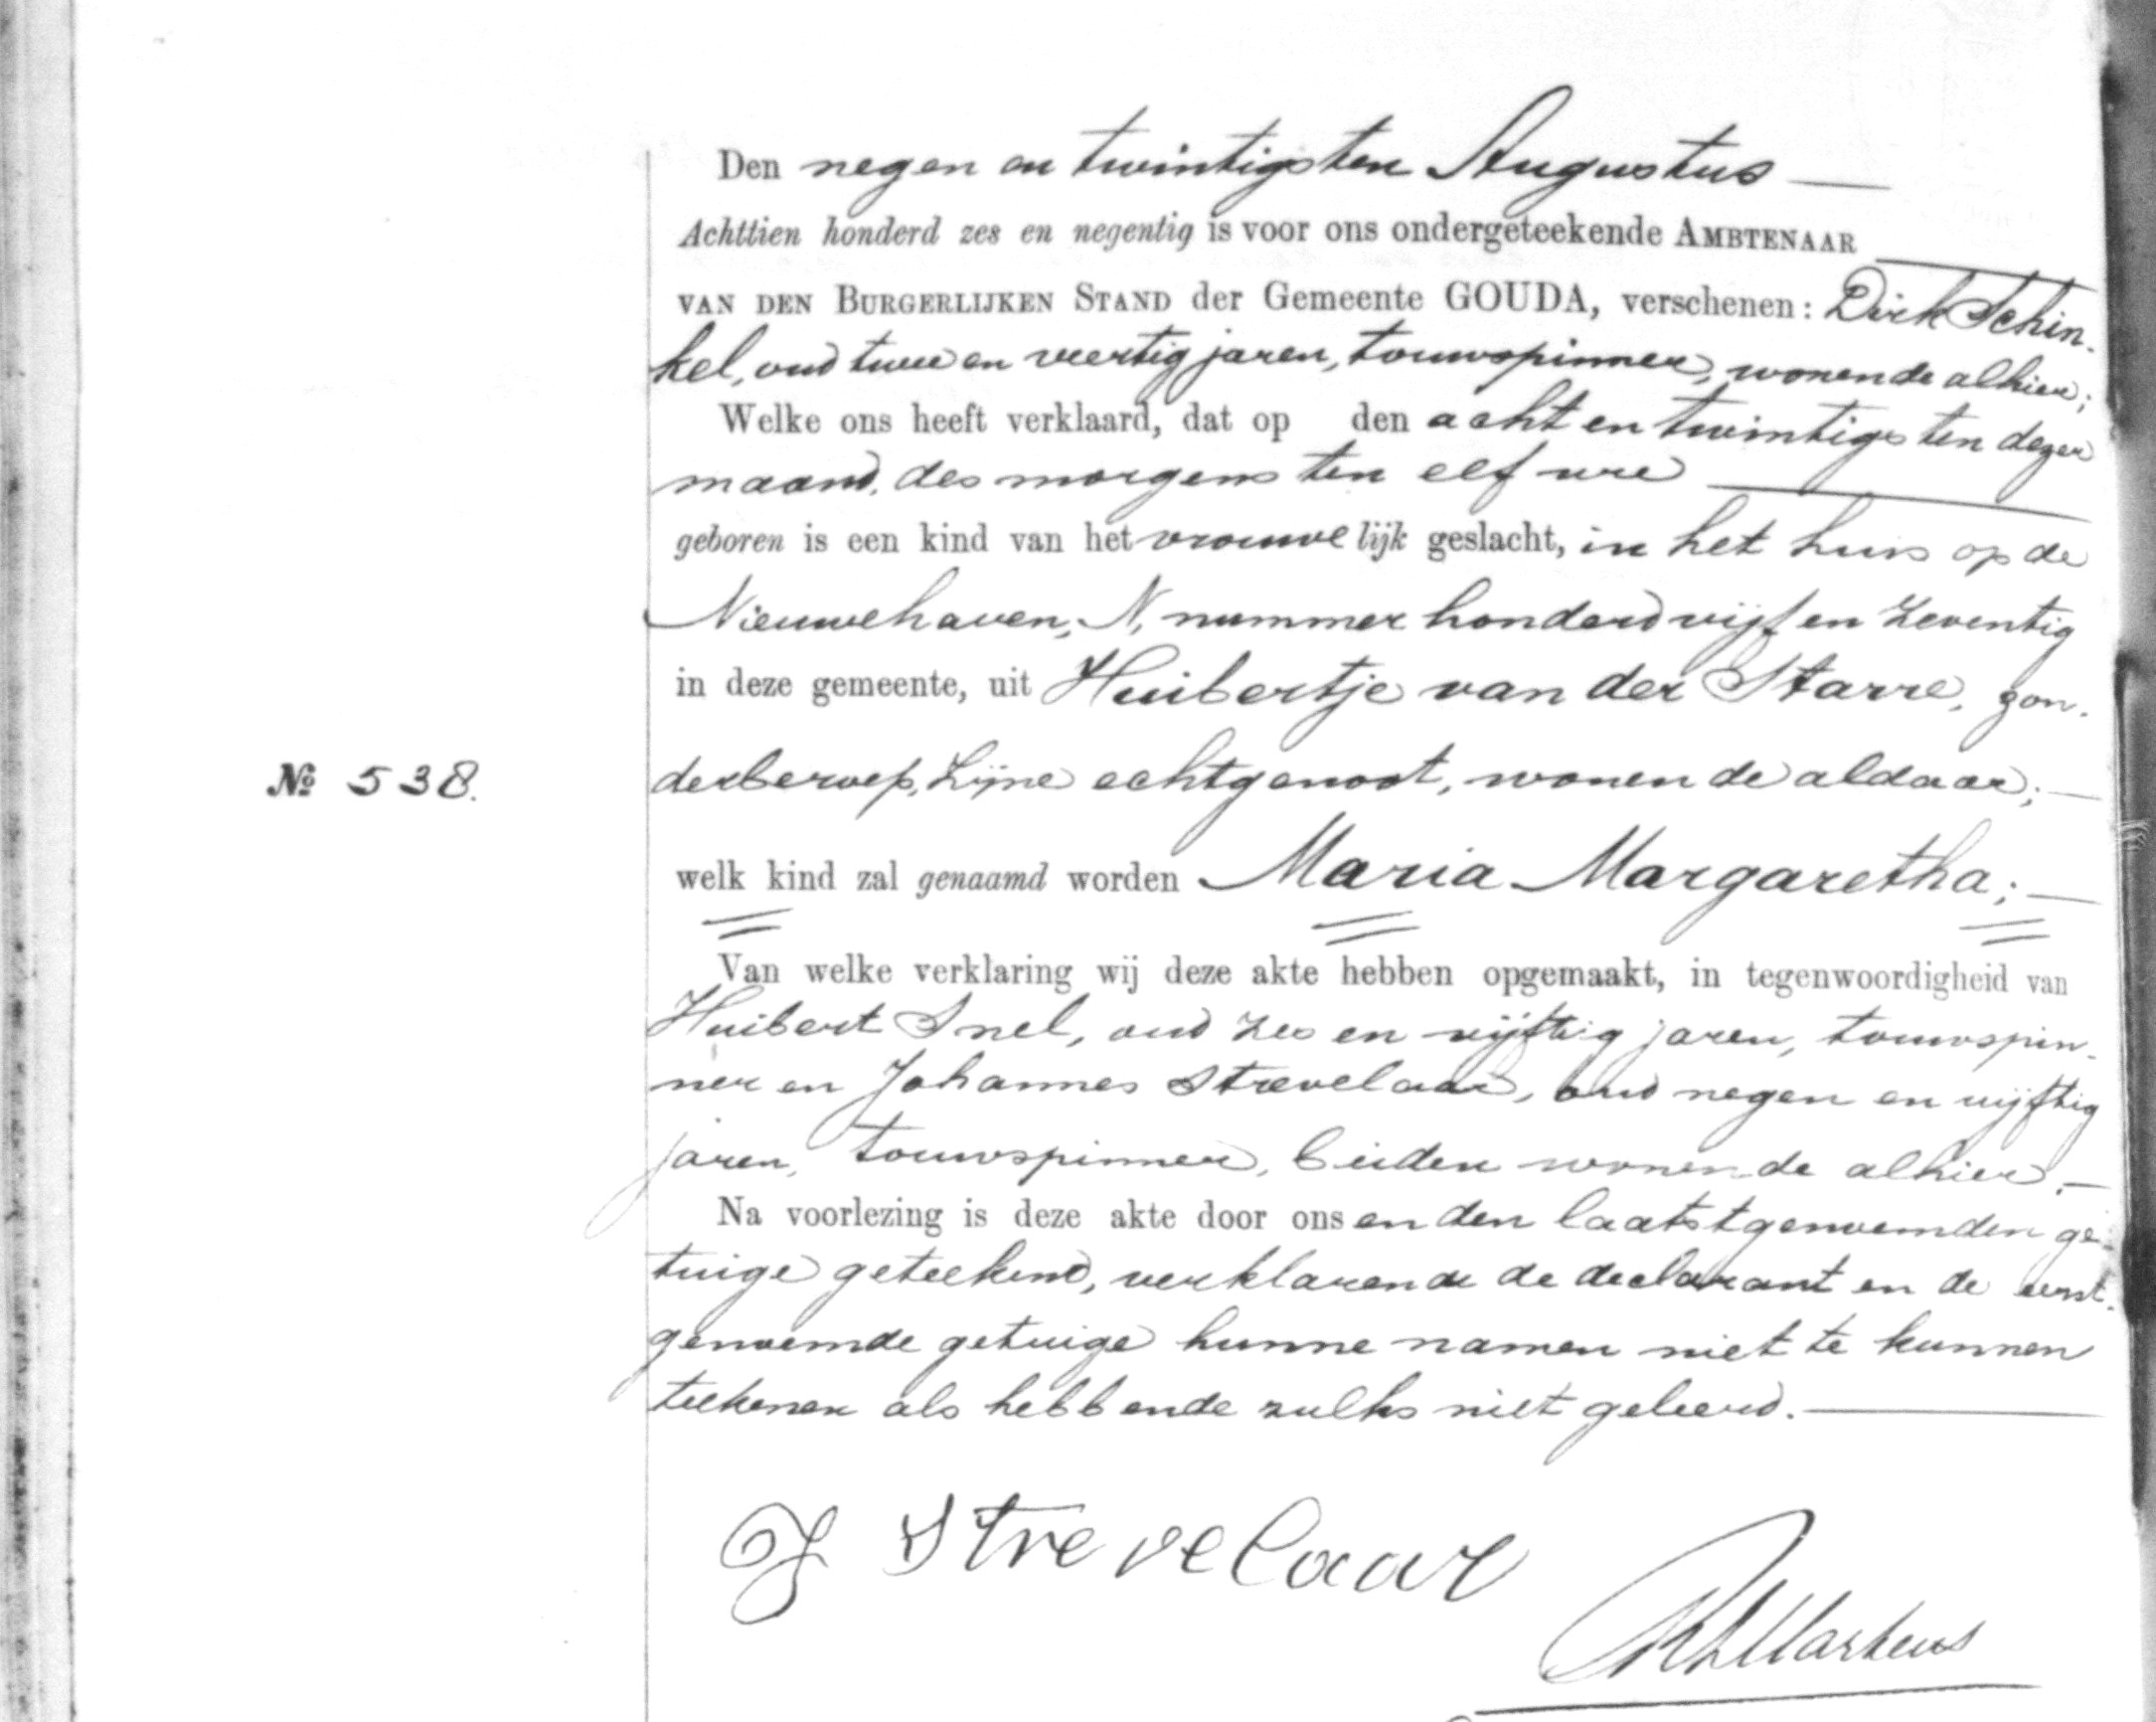 Den negen en twintigsten Augustus
Achttien honderd zes en negentig is voor ons ondergeteekende AMBTENAAR
VAN DEN BURGERLIJKEN STAND der Gemeente GOUDA, verschenen: Dirk Schin-
kel, oud twee en veertig jaren, touwspinner, wonende alhier;
Welke ons heeft verklaard, dat op den acht en twintigsten dezer
maand, des morgens ten elf ure
geboren is een kind van het vrouwelijk geslacht, in het huis op de
Nieuwehaven, N, nummer honderd vijf en zeventig
in deze gemeente, uit Huibertje van der Starre, zon-
der beroep, zijne echtgenoot, wonende aldaar;
№ 538.
welk kind zal genaamd worden Maria Margaretha;
Van welke verklaring wij deze akte hebben opgemaakt, in tegenwoordigheid van
Huibert Snel, oud zes en vijftig jaren, touwspin-
ner en Johannes Strevelaar, oud negen en vijftig
jaren, touwspinner, beiden wonende alhier.
Na voorlezing is deze akte door ons en den laatstgenoemden ge-
tuige geteekend, verklarende de declarant en de eerst-
genoemde getuige hunne namen niet te kunnen
teekenen als hebbende zulks niet geleerd.
J Strevelaar